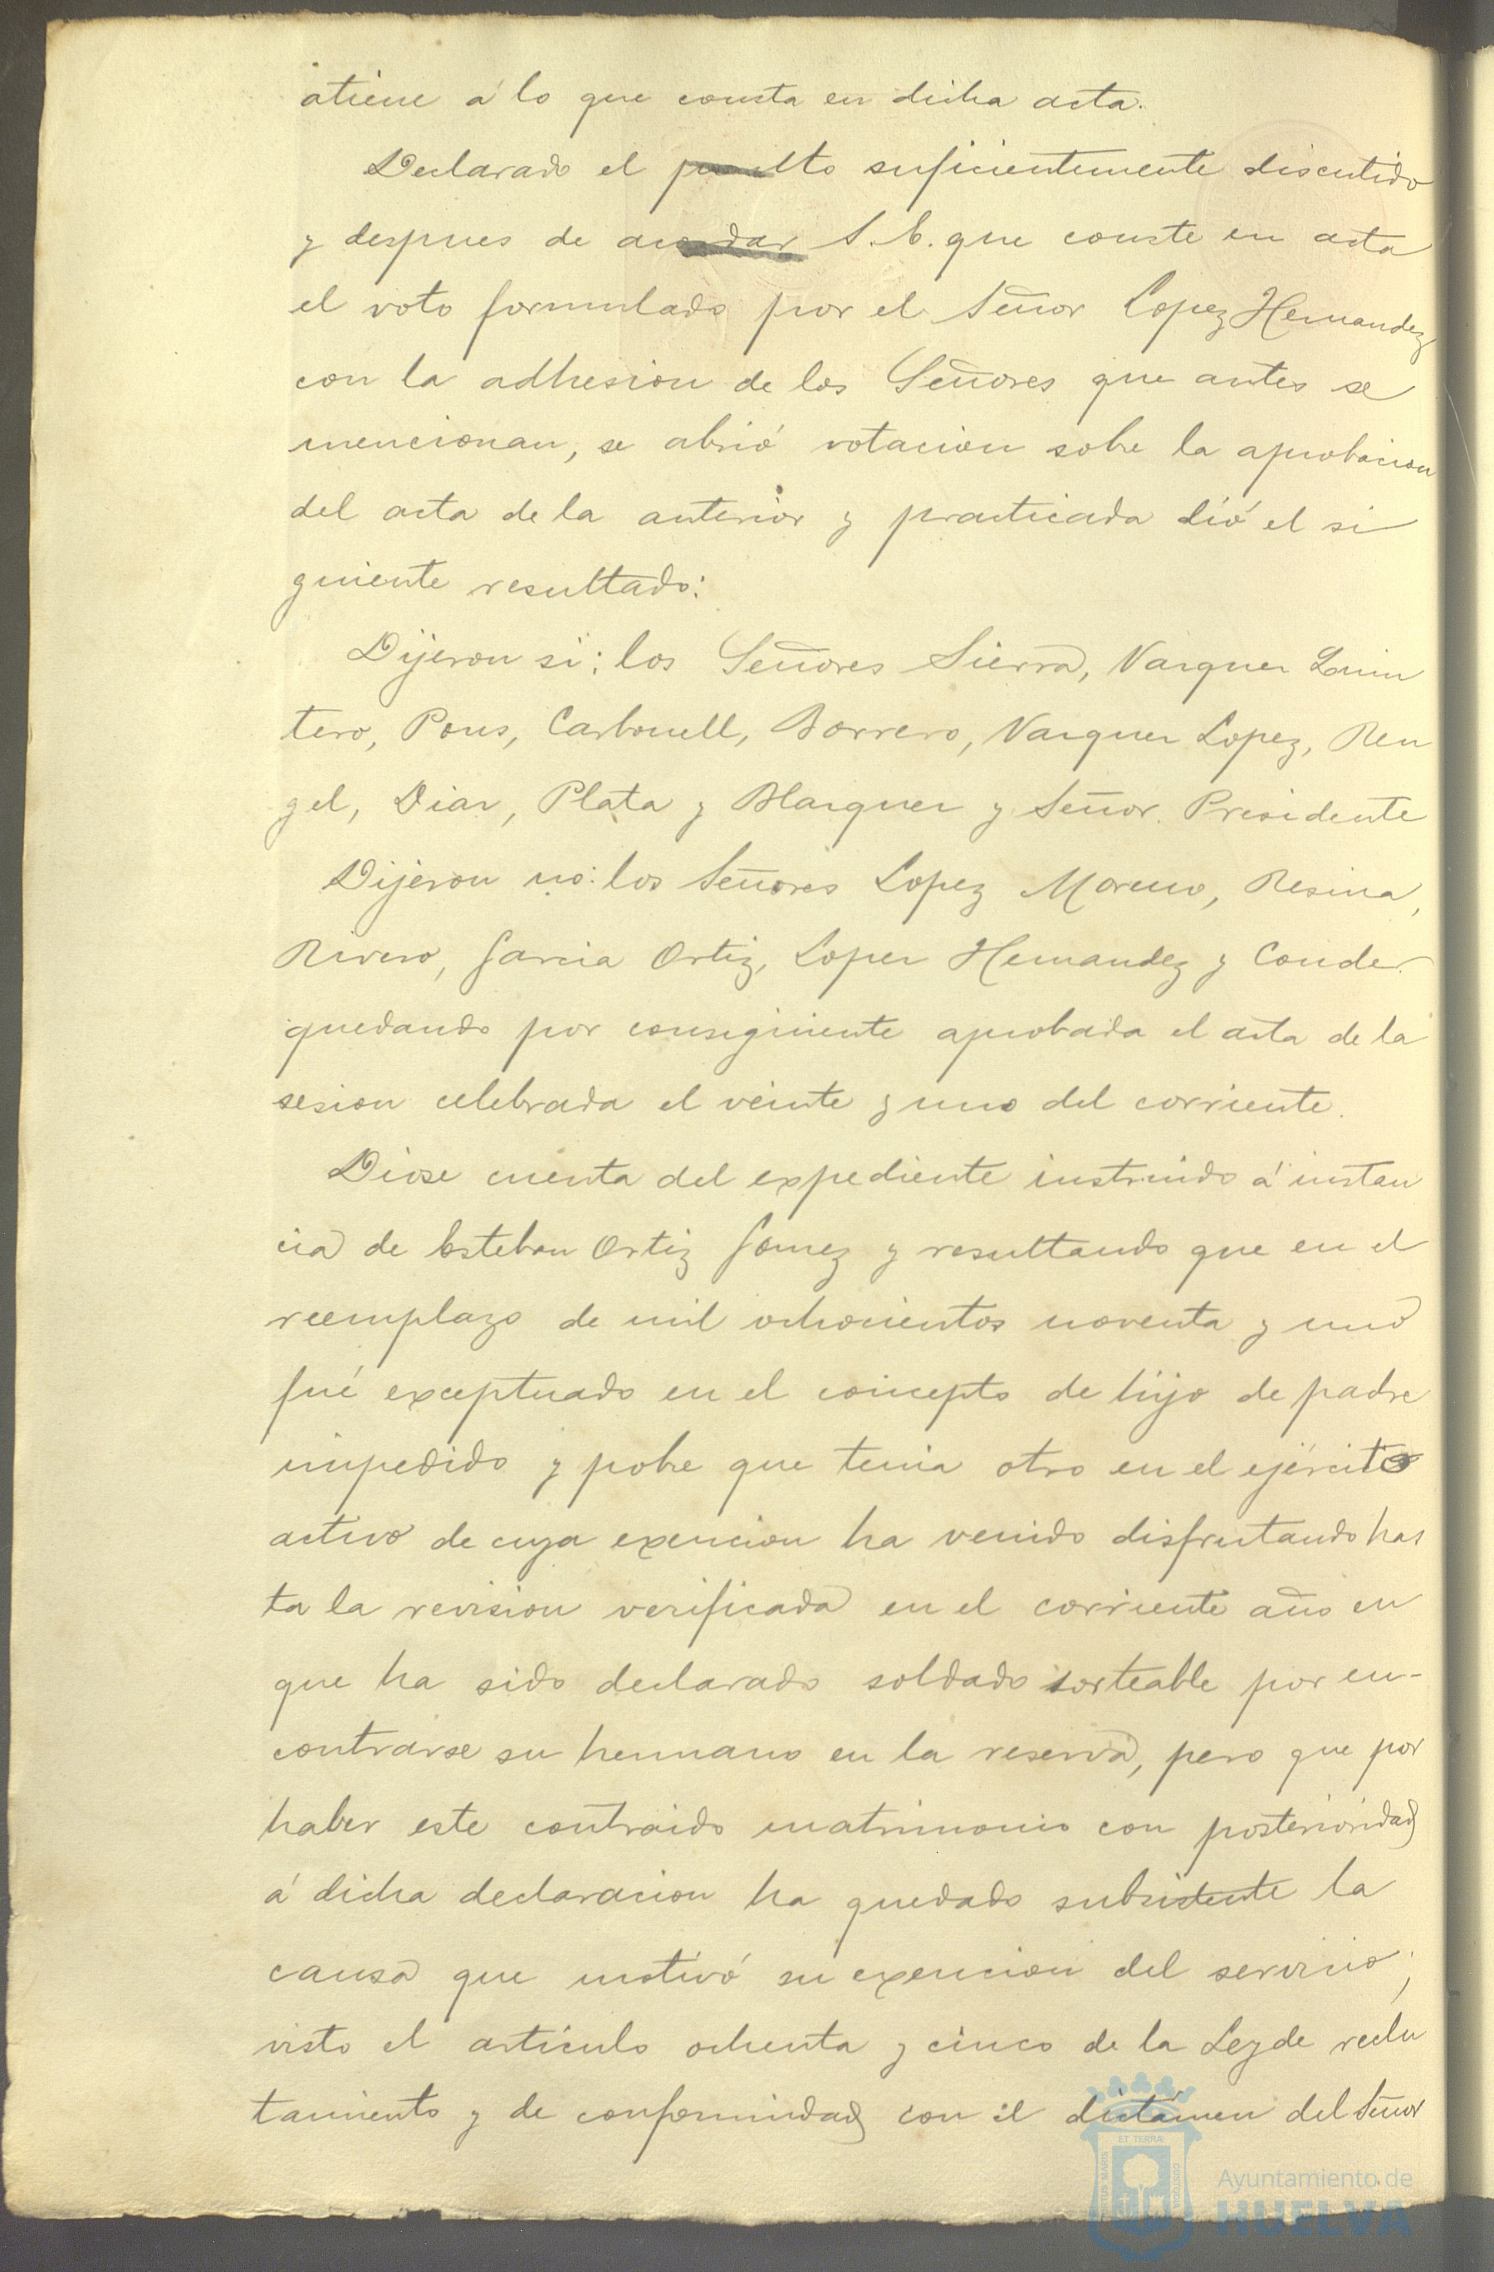 atiene á lo que consta en dicha acta.
Declarado el punto suficientemente discutido
y despues de acordar S. E. que conste en acta
el voto formulado por el Señor Lopez Hernandez
con la adhesion de los Señores que antes se
mencionan, se abrió votacion sobre la aprobacion
del acta de la anterior y practicada dió el si
guiente resultado:
Dijeron si: los Señores Sierra, Vazquez Quin
tero, Pons, Carbonell, Borrero, Vazquez Lopez, Ren
gel, Diaz, Plata y Blazquez y Señor Presidente
Dijeron no: los Señores Lopez Moreno, Resina,
Rivero, Garcia Ortiz, Lopez Hernandez y Conde
quedando por consiguiente aprobada el acta de la
sesion celebrada el veinte y uno del corriente.
Diose cuenta del expediente instruido á instan
cia de Esteban Ortiz Gomez y resultando que en el
reemplazo de mil ochocientos noventa y uno
fué exceptuado en el concepto de hijo de padre
impedido y pobre que tenia otro en el ejército
activo de cuya exencion ha venido disfrutando has
ta la revision verificada en el corriente año en
que ha sido declarado soldado sorteable por en-
contrarse su hermano en la reserva, pero que por
haber este contraido matrimonio con posterioridad
á dicha declaracion ha quedado subsistente la
causa que motivó su exencion del servicio;
visto el articulo ochenta y cinco de la Ley de reclu
tamiento y de conformidad con el dictámen del Señor
ET TERRA
CUSTODIA
Ayuntamiento de
HUELVA